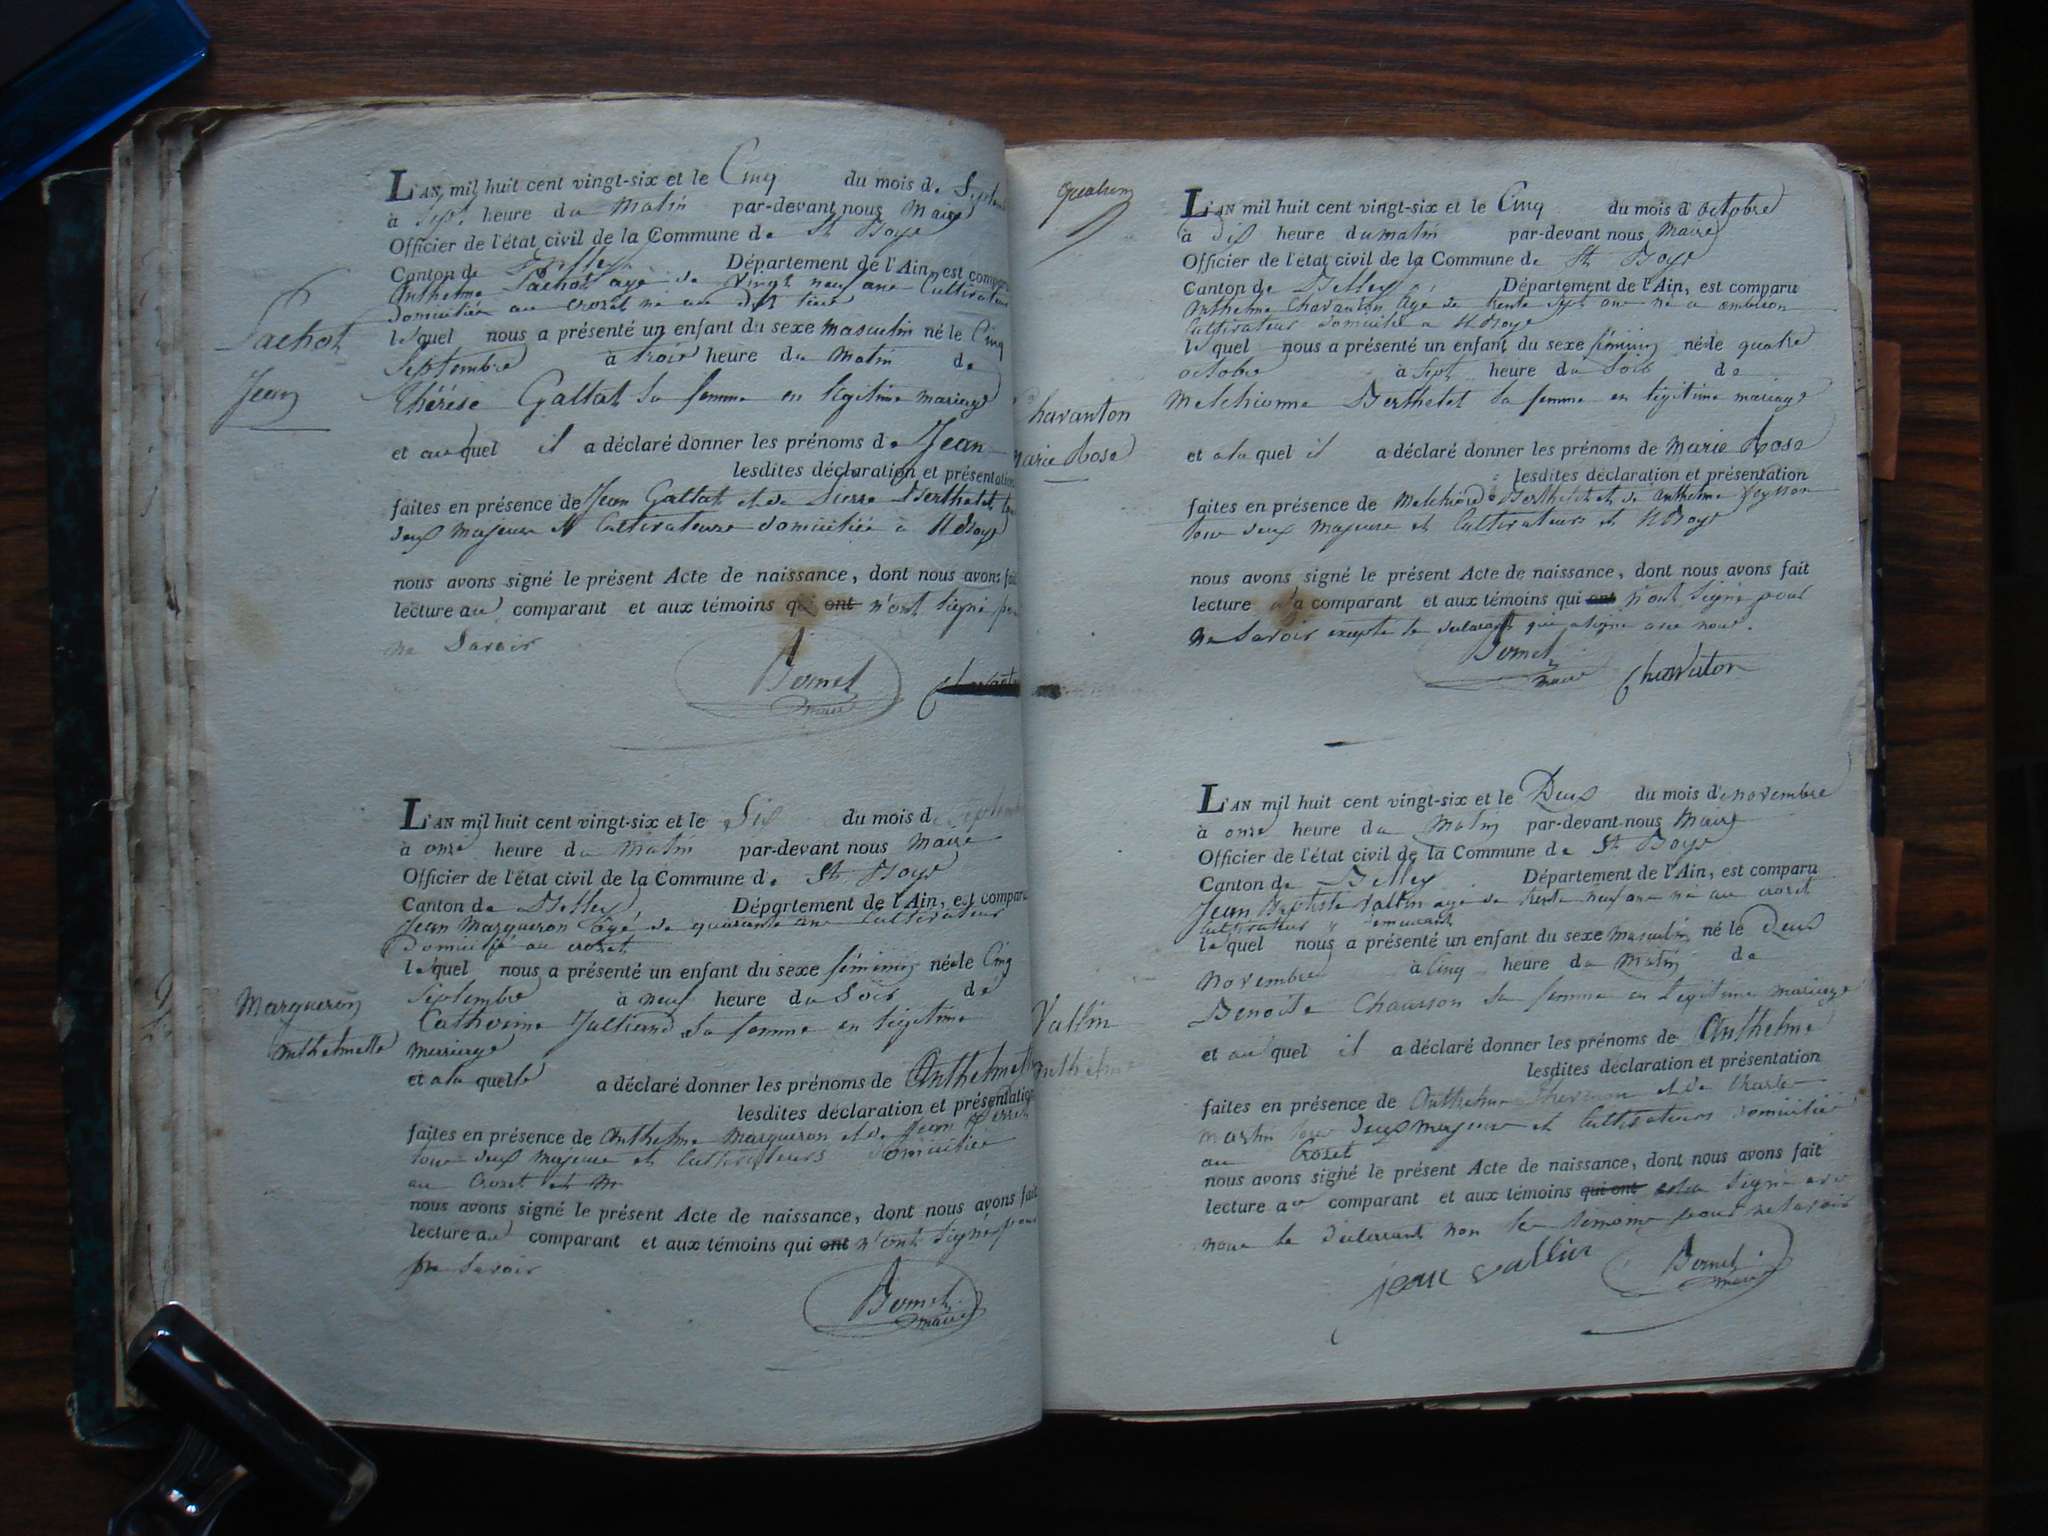 L'AN mil huit cent vingt-six et le Cinq du mois de Septem
à Sept heure du Matin par-devant nous Maire
Officier de l'état civil de la Commune de St Boys
Canton de Belley Département de l'Ain, est comparu
Anthelme Pachot agé de Vingt neuf ans Cultivateur
domicilié au Crozet né au dit lieu
lequel nous a présenté un enfant du sexe masculin né le Cinq
Septembre à trois heure du Matin de
Thérèse Gallat Sa femme en légitime mariage
Pachot
Jean
et auquel il a déclaré donner les prénoms de Jean
lesdites déclaration et présentation
faites en présence de Jean Gallat et de Pierre Berthelet
deux majeurs et Cultivateurs domiciliés à St Boys
nous avons signé le présent Acte de naissance, dont nous avons fait
lecture au comparant et aux témoins qui ont n'ont Signé pour
ne Savoir
Bornet
maire
L'AN mil huit cent vingt-six et le Six du mois de Septembre
à onze heure du Matin par-devant nous Maire
Officier de l'état civil de la Commune de St Boys
Canton de Belley Département de l'Ain, est comparu
Jean Margueron agé de quarante ans Cultivateur
Domicilié au crozet
lequel nous a présenté un enfant du sexe féminin né le Cinq
Septembre à neuf heure du Soir de
Catherine Julliand Sa femme en légitime
mariage
Margueron
Anthelmette
et a la quelle a déclaré donner les prénoms de Anthelmette
lesdites déclaration et présentation
faites en présence de Anthelme Margueron et de Jean Perret
tous deux majeurs et Cultivateurs domiciliés
au Crozet
nous avons signé le présent Acte de naissance, dont nous avons fait
lecture au comparant et aux témoins qui ont n'ont Signé pour
ne Savoir
Bornet
maire
L'AN mil huit cent vingt-six et le Cinq du mois d'octobre
à dix heure du matin par-devant nous Maire
Officier de l'état civil de la Commune de St Boys
Canton de Belley Département de l'Ain, est comparu
Anthelme Chavanton agé de trente Sept ans né a ambléon
Cultivateur domicilié a St Boys
lequel nous a présenté un enfant du sexe féminin né le quatre
octobre à Sept heure du Soir de
Melchionne Berthelet Sa femme en légitime mariage
Chavanton
Marie Rose
et a la quel il a déclaré donner les prénoms de Marie Rose
lesdites déclaration et présentation
faites en présence de Melchior Berthelet et de Anthelme
tous deux majeurs et Cultivateurs et St Boys
nous avons signé le présent Acte de naissance, dont nous avons fait
lecture au comparant et aux témoins qui ont n'ont Signé pour
ne Savoir excepté le déclarant qui a signé avec nous.
Bornet
maire
Chavaton
L'AN mil huit cent vingt-six et le Deux du mois d'novembre
à onze heure du Matin par-devant nous Maire
Officier de l'état civil de la Commune de St Boys
Canton de Belley Département de l'Ain, est comparu
Jean Baptiste Vallin agé de trente neuf ans né au crozet
Cultivateur y demeurant
lequel nous a présenté un enfant du sexe masculin né le Deux
novembre à Cinq heure du Matin de
Benoite Chausson Sa femme en légitime mariage
Vallin
Anthelme
et au quel il a déclaré donner les prénoms de Anthelme
lesdites déclaration et présentation
faites en présence de Anthelme Thevenon et de Charle
Martin tous deux majeurs et Cultivateurs domiciliés
au Crozet
nous avons signé le présent Acte de naissance, dont nous avons fait
lecture au comparant et aux témoins qui ont Signé avec
nous le déclarant non les témoins pour ne Savoir
jean vallin
Bornet
maire